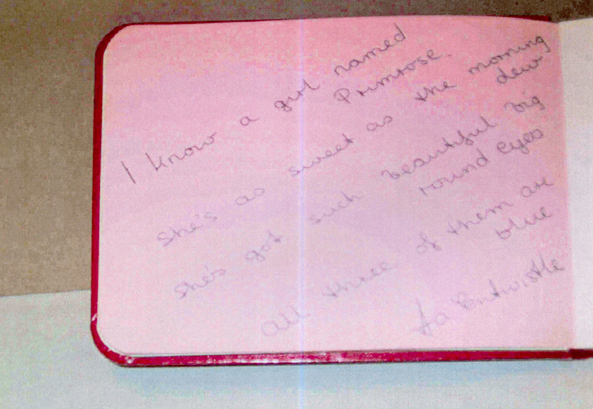 I know a girl named
Primrose.
She's as sweet as the morning
dew
She's got such beautiful big
round eyes
All three of them are
blue
Entwistle